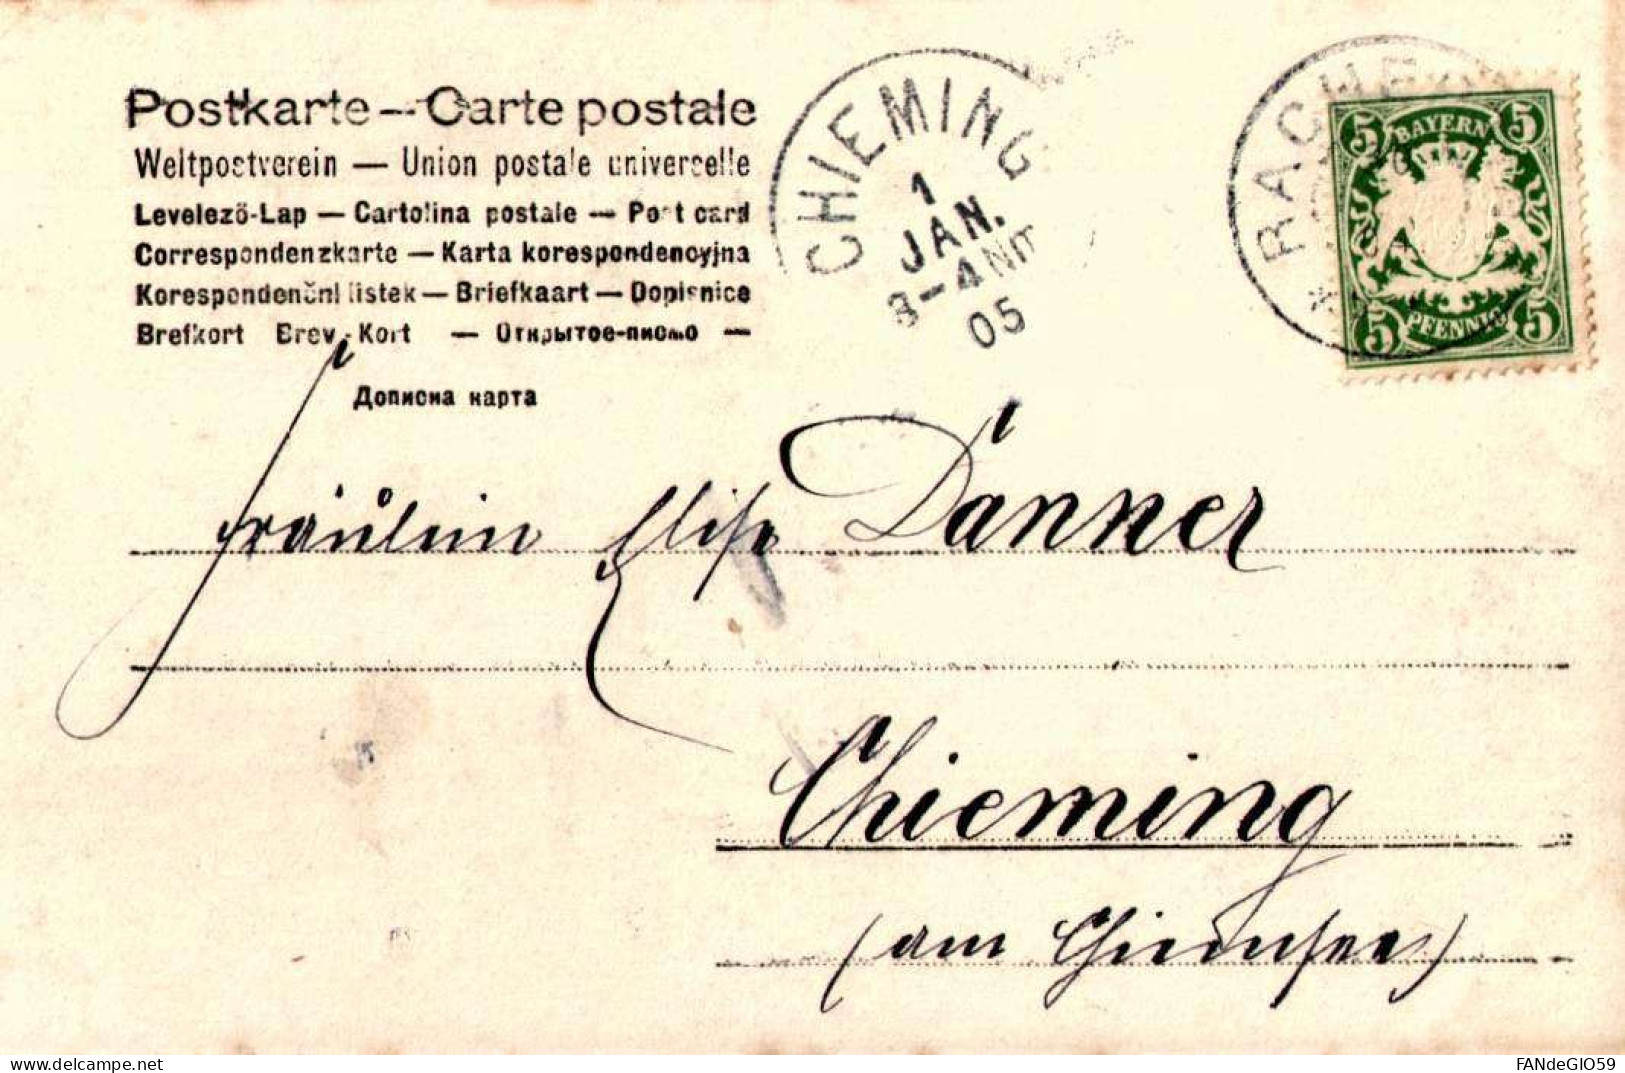 Postkarte — Carte postale
Weltpostverein — Union postale universelle
Levelező-Lap — Cartolina postale — Post card
Correspondenzkarte — Karta korespondencyjna
Korespondenční listek — Briefkaart — Dopisnice
Brefkort Brev-Kort — Открытое-письмо —
Дописна карта
CHIEMING
1
JAN.
3-4 NM
05
BAYERN
5 5
5 PFENNIG 5
Fräulein Elise Danner
Chieming
(am Chiemsee)
FANdeGIO59